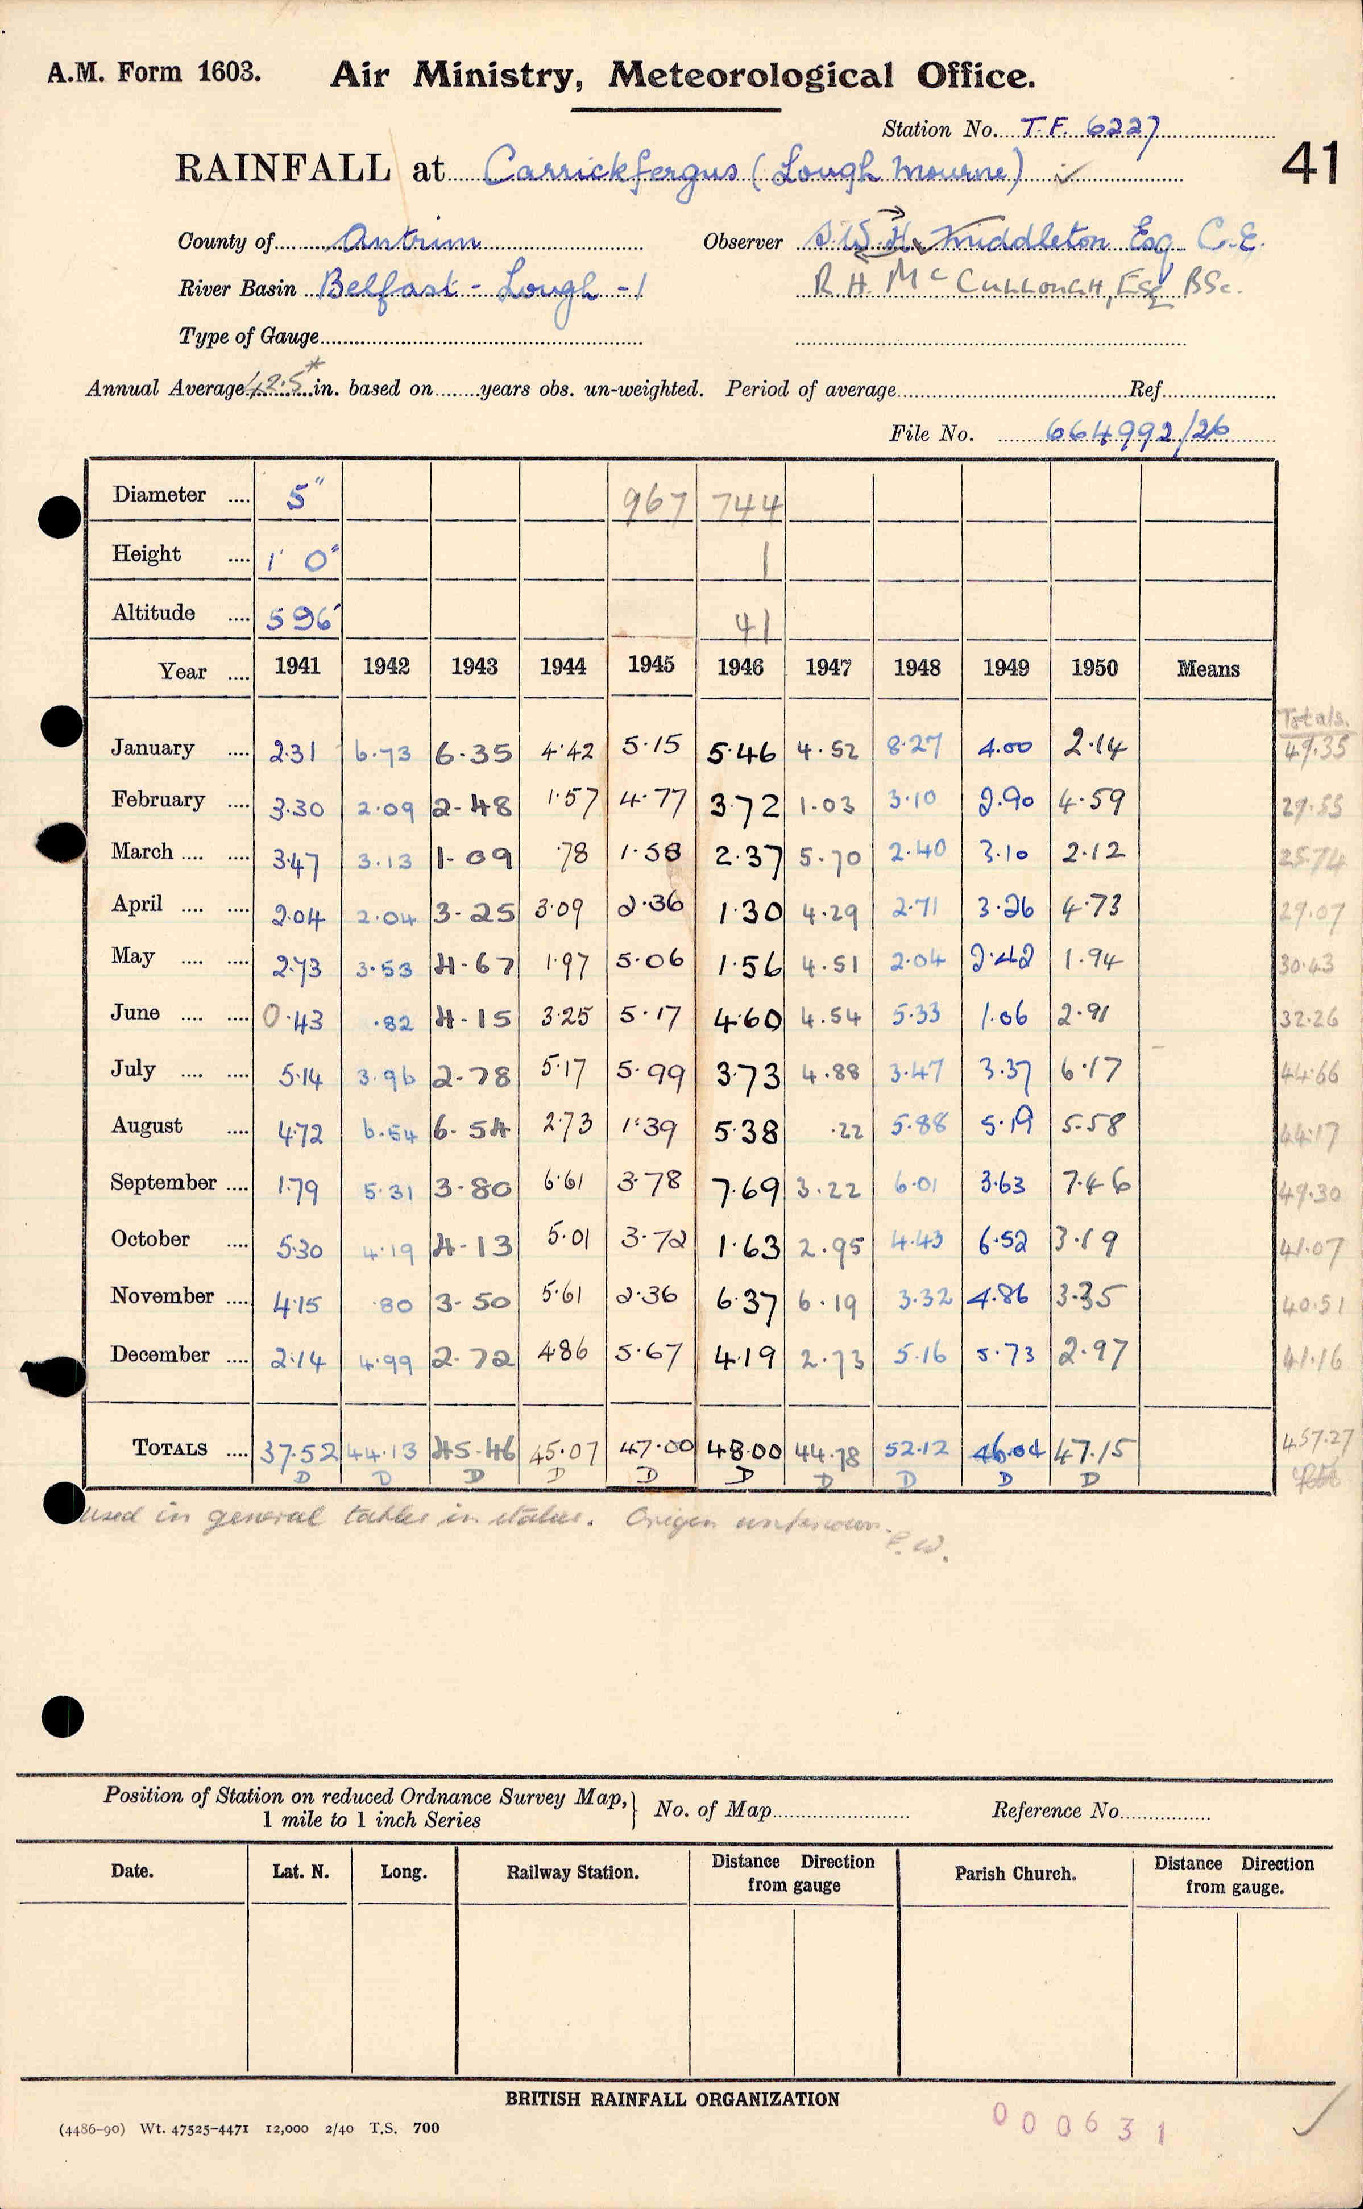 A.M. Form 1603. Air Ministry, Meteorological Office.
Station No. T.F. 6227
41
RAINFALL at Carrickfergus (Lough Mourne) ✓
County of Antrim Observer S.W.H. Middleton Esq C.E.
River Basin Belfast - Lough - 1 R.H. McCULLOUGH, Esq BSc.
Type of Gauge
Annual Average 42.5* in. based on years obs. un-weighted. Period of average Ref.
File No. 664992/26
Diameter .... 5" 967 744
Height .... 1' 0" 1
Altitude .... 596' 41
Year .... 1941 1942 1943 1944 1945 1946 1947 1948 1949 1950 Means
Totals.
January .... 2.31 6.73 6.35 4.42 5.15 5.46 4.52 8.27 4.00 2.14 49.35
February .... 3.30 2.09 2.48 1.57 4.77 3.72 1.03 3.10 2.90 4.59 29.55
March .... .... 3.47 3.13 1.09 .78 1.58 2.37 5.70 2.40 3.10 2.12 25.74
April .... .... 2.04 2.04 3.25 3.09 2.36 1.30 4.29 2.71 3.26 4.73 29.07
May .... .... 2.73 3.53 4.67 1.97 5.06 1.56 4.51 2.04 2.42 1.94 30.43
June .... .... 0.43 .82 4.15 3.25 5.17 4.60 4.54 5.33 1.06 2.91 32.26
July .... .... 5.14 3.96 2.78 5.17 5.99 3.73 4.88 3.47 3.37 6.17 44.66
August .... 4.72 6.54 6.54 2.73 1.39 5.38 .22 5.88 5.19 5.58 44.17
September .... 1.79 5.31 3.80 6.61 3.78 7.69 3.22 6.01 3.63 7.46 49.30
October .... 5.30 4.19 4.13 5.01 3.72 1.63 2.95 4.43 6.52 3.19 41.07
November .... 4.15 .80 3.50 5.61 2.36 6.37 6.19 3.32 4.86 3.35 40.51
December .... 2.14 4.99 2.72 4.86 5.67 4.19 2.73 5.16 5.73 2.97 41.16
TOTALS .... 37.52 44.13 45.46 45.07 47.00 48.00 44.78 52.12 46.04 47.15 457.27
D D D D D D D D D D
used in general tables in italics. Origin unknown.
E.W.
Position of Station on reduced Ordnance Survey Map, } No. of Map Reference No.
1 mile to 1 inch Series
Date. Lat. N. Long. Railway Station. Distance Direction from gauge Parish Church. Distance Direction from gauge.
BRITISH RAINFALL ORGANIZATION
(4486-90) Wt. 47525-4471 12,000 2/40 T.S. 700
000631